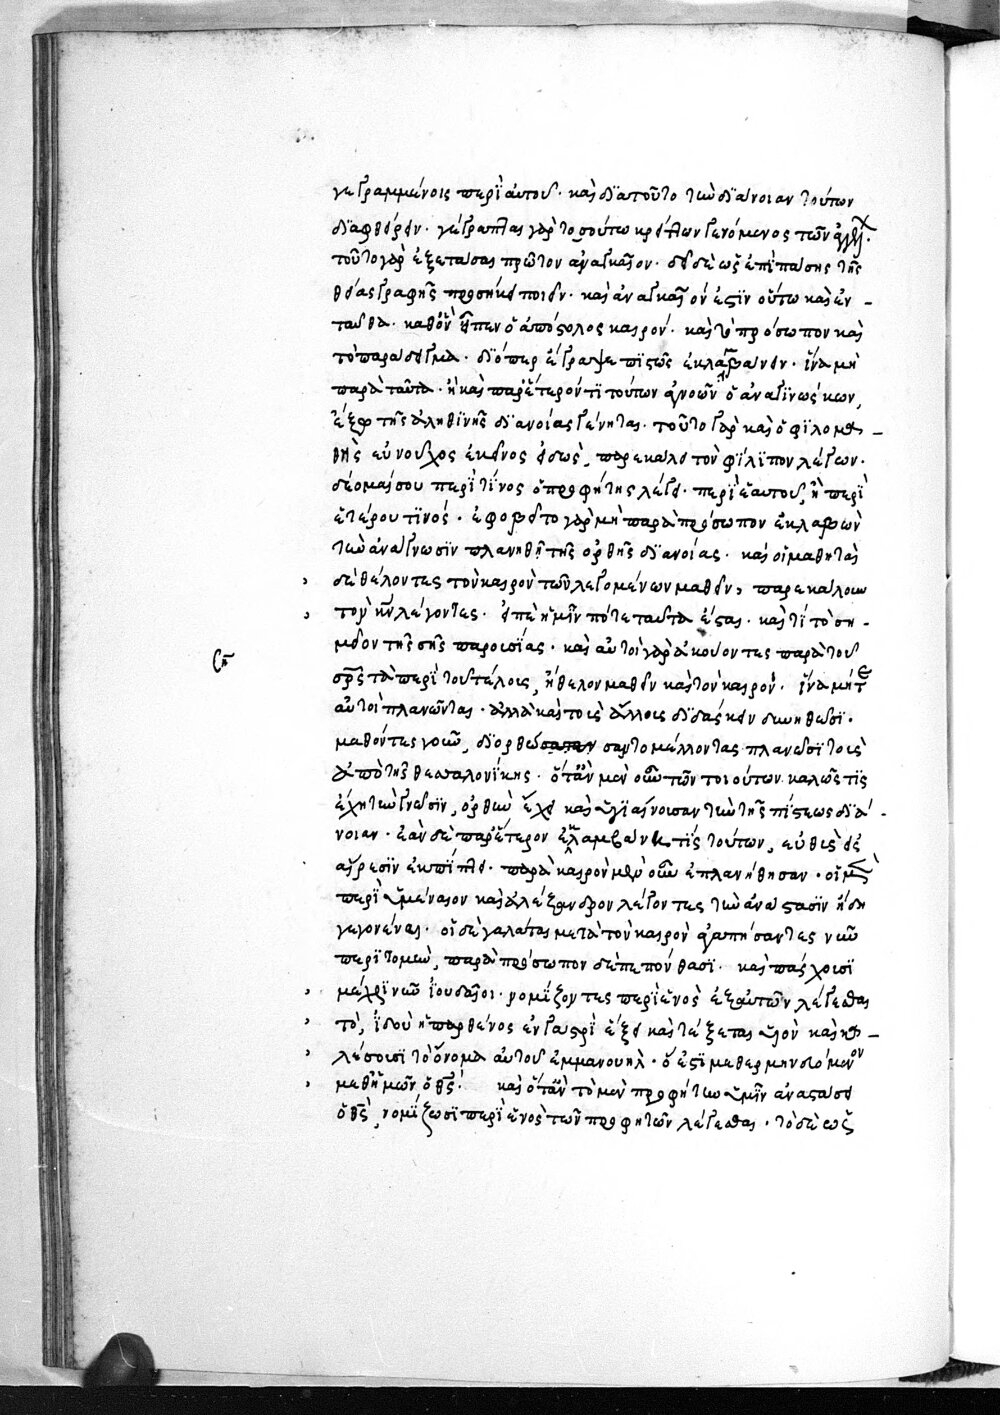 γεγραμμένοις περὶ αὐτοῦ· καὶ διατοῦτο τὴν διάνοιαν τούτων
διαφθείρειν· γέγραπται γὰρ τοσούτω κρείττων γενόμενος τῶν ἀγγέλ·
τοῦτο γὰρ ἐξετάσαι πρῶτον ἀναγκαῖον· δεῖ δὲ ὡς ἐπὶ πάσης τῆς
θείας γραφῆς προσήκει ποιεῖν· καὶ ἀναγκαῖόν ἐστιν οὕτω καὶ ἐν-
ταῦθα· καθ' ὃν εἶπεν ὁ ἀπόστολος καιρόν· καὶ τὸ πρόσωπον καὶ
τὸ πρᾶγμα· διόπερ ἔγραψε πιστῶς ἐκλαμβάνειν· ἵνα μὴ
παρὰ ταῦτα· ἢ καὶ παρ' ἕτερόν τι τούτων ἀγνοῶν ὁ ἀναγινώσκων,
ἔξω τῆς ἀληθινῆς διανοίας γένηται· τοῦτο γὰρ καὶ ὁ φιλομα-
θὴς εὐνοῦχος ἐκεῖνος εἰδὼς, παρεκάλει τὸν φίλιππον λέγων·
δέομαί σου περὶ τίνος ὁ προφήτης λέγει· περὶ ἑαυτοῦ, ἢ περὶ
ἑτέρου τινός· ἐφοβεῖτο γὰρ μὴ παρὰ πρόσωπον ἐκλαβὼν
τὴν ἀνάγνωσιν πλανηθῇ τῆς ὀρθῆς διανοίας· καὶ οἱ μαθηταὶ
δὲ θέλοντες τὸν καιρὸν τῶν λεγομένων μαθεῖν, παρεκάλουν
τὸν κν λέγοντες· εἰπὲ ἡμῖν πότε ταῦτα ἔσται· καὶ τί τὸ ση-
μεῖον τῆς σῆς παρουσίας· καὶ αὐτοὶ γὰρ ἀκούοντες παρὰ τοῦ
σρς τὰ περὶ τοῦ τέλους, ἤθελον μαθεῖν καὶ τὸν καιρόν· ἵνα μήτε
αὐτοὶ πλανῶνται· ἀλλὰ καὶ τοὺς ἄλλους διδάσκειν δυνηθῶσι·
μαθόντες γοῦν, διορθώσαντο μέλλοντας πλανᾶσθαι τοὺς
ἀπὸ τῆς θεσσαλονίκης· ὅταν μὲν οὖν τῶν τοιούτων καλῶς τις
ἔχῃ τὴν γνῶσιν, ὀρθὴν ἔχει καὶ ὑγιαίνουσαν τὴν τῆς πίστεως διά-
νοιαν· ἐὰν δὲ παρ' ἕτερον ἐκλαμβάνῃ τίς τούτων, εὐθὺς εἰς
αἵρεσιν ἐκπίπτει· παρὰ καιρὸν μὲν οὖν ἐπλανήθησαν· οἱ μὲν
περὶ ὑμέναιον καὶ ἀλέξανδρον λέγοντες τὴν ἀνάστασιν ἤδη
γεγονέναι· οἱ δὲ γαλάται μετὰ τὸν καιρὸν ἀγαπήσαντες νῦν
περιτομὴν, παρὰ πρόσωπον δὲ πεπόνθασι· καὶ πάσχουσι
μέχρι νῦν ἰουδαῖοι· νομίζοντες περὶ ἑνὸς ἐξ αὐτῶν λέγεσθαι
τό, ἰδοὺ ἡ παρθένος ἐν γαστρὶ ἕξει καὶ τέξεται υἱὸν καὶ κα-
λέσουσι τὸ ὄνομα αὐτοῦ ἐμμανουὴλ· ὅ ἐστι μεθερμηνευόμενον
μεθ' ἡμῶν ὁ θς· καὶ ὅταν τὸ μὲν προφήτην ὑμῖν ἀναστήσει
ὁ θς, νομίζωσι περὶ ἑνὸς τῶν προφητῶν λέγεσθαι· τὸ δὲ ὡς